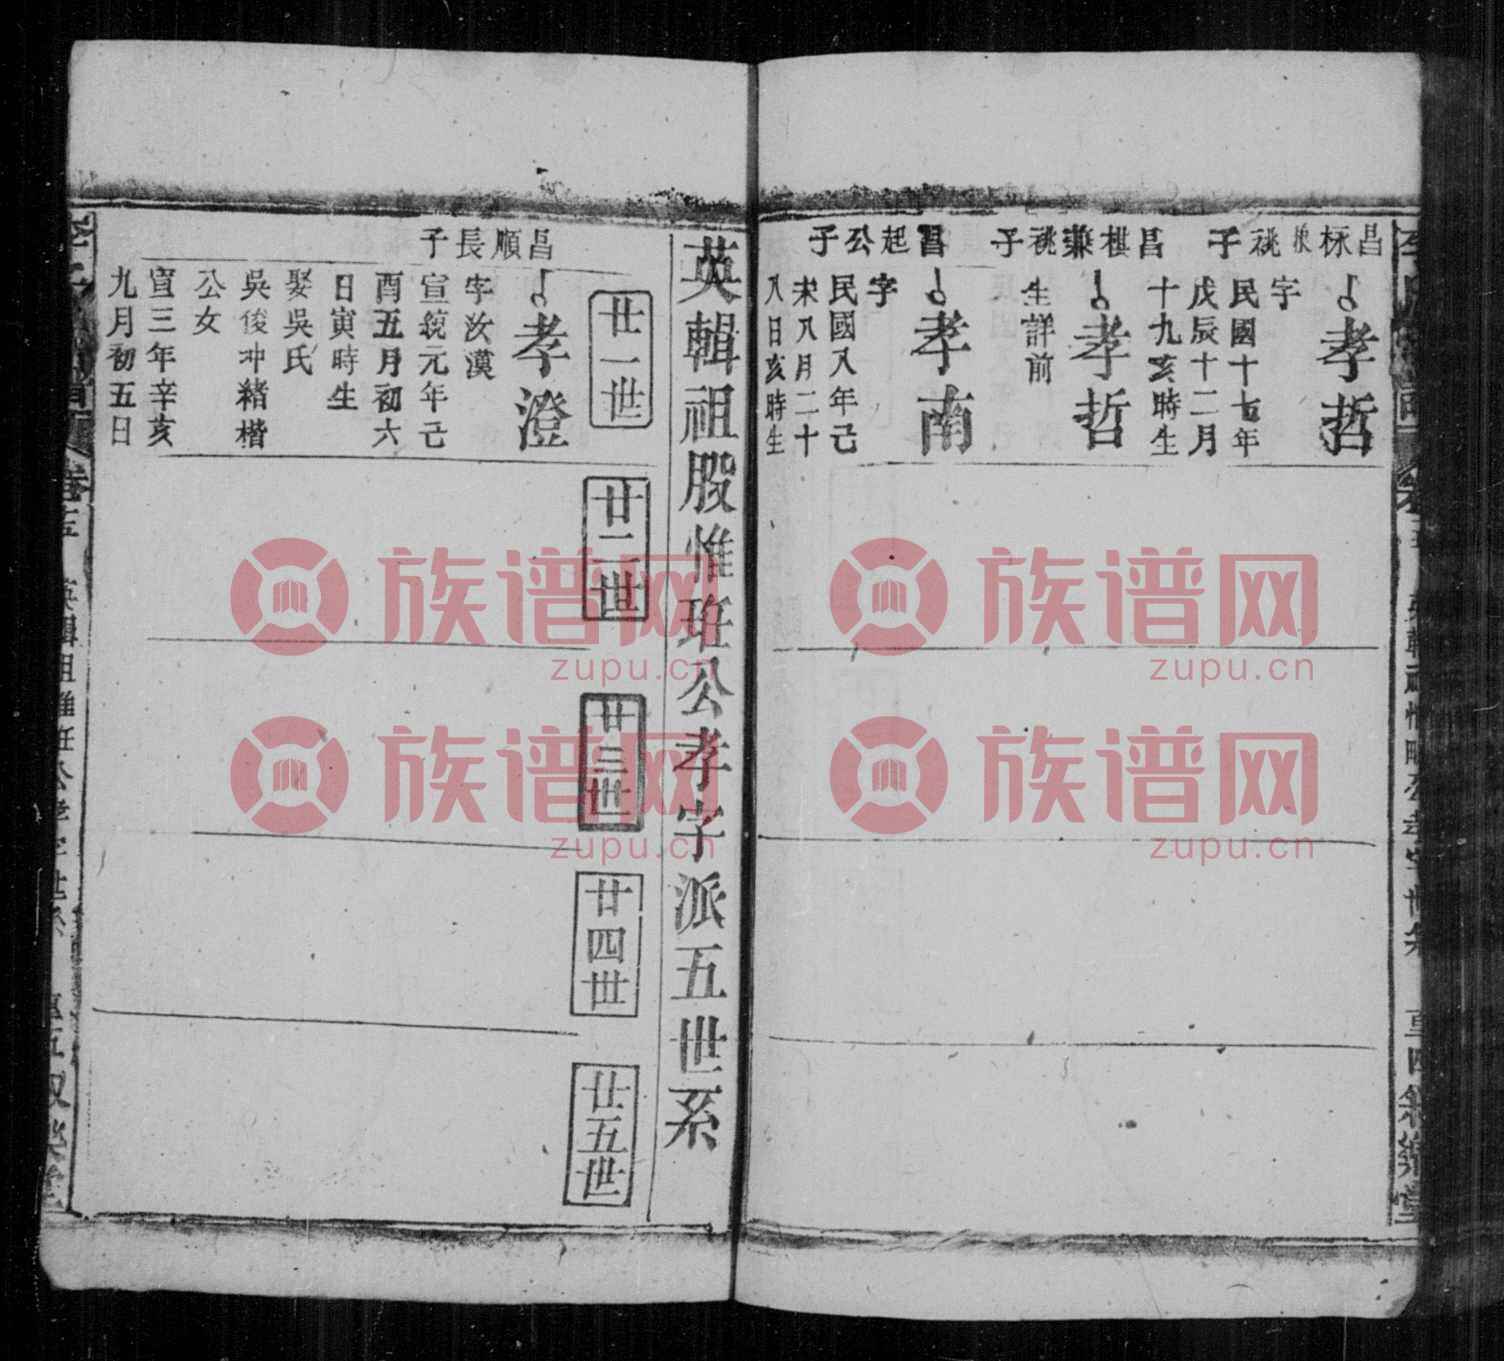 昌㮈兼祧子
孝哲
字
民國十七年
戊辰十二月
十九亥時生
昌棋兼祧子
孝哲
生詳前
昌起公子
孝南
字
民國八年己
未八月二十
八日亥時生
英輯祖股惟班公孝字派五世系
廿一世
廿二世
廿三世
廿四世
廿五世
昌順長子
孝澄
字汝漢
宣統元年己
酉五月初六
日寅時生
娶吳氏
吳俊冲緒楷
公女
宣三年辛亥
九月初五日
族谱网
zupu.cn
族谱网
zupu.cn
族谱网
zupu.cn
族谱网
zupu.cn